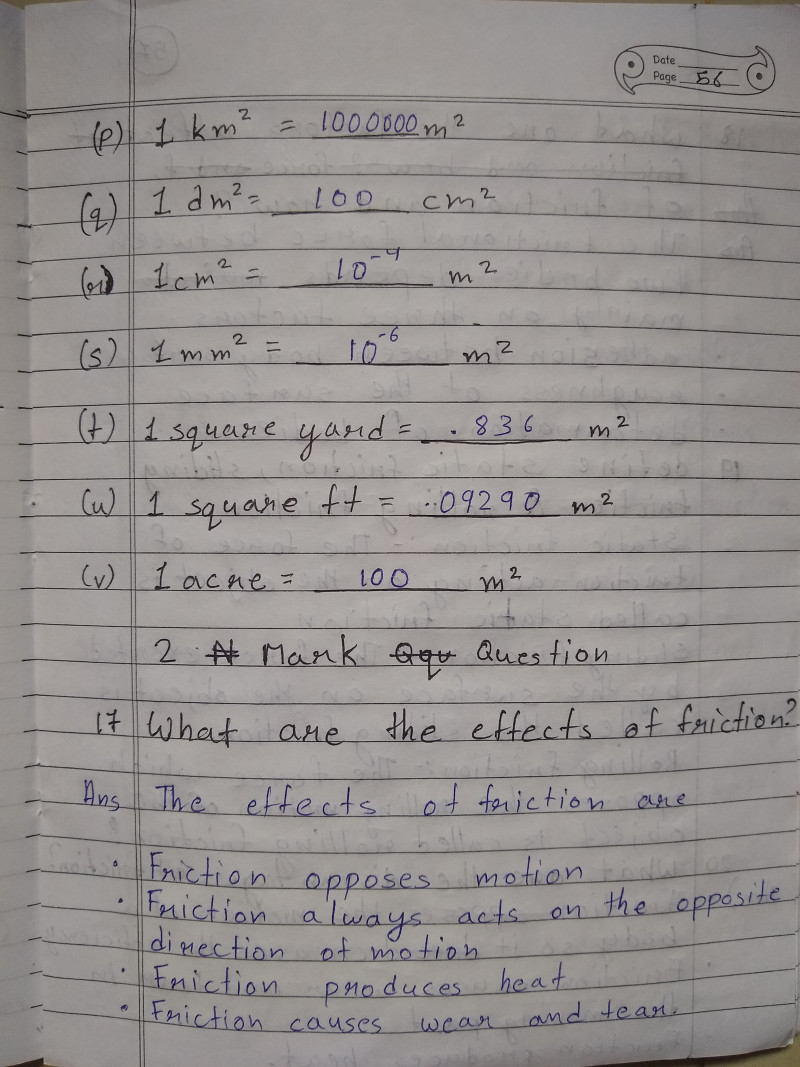 Date
Page 56
(p) 1 km² = 1000000 m²
(q) 1 dm² = 100 cm²
(r) 1cm² = 10⁻⁴ m²
(s) 1 mm² = 10⁻⁶ m²
(t) 1 square yard = .836 m²
(u) 1 square ft = .09290 m²
(v) 1 acre = 100 m²
2 Mark Question
17 What are the effects of friction?
Ans The effects of friction are
• Friction opposes motion
• Friction always acts on the opposite
direction of motion
• Friction produces heat
• Friction causes wear and tear.